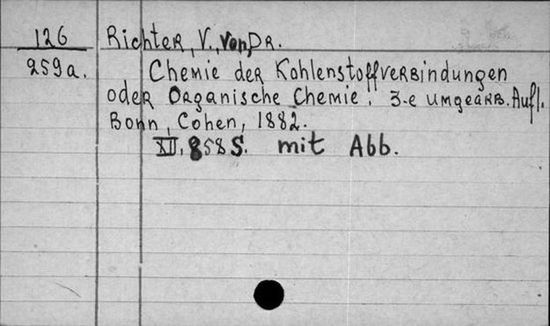 126
259a.
Richter, V., von, Dr.
Chemie der Kohlenstoffverbindungen
oder Organische Chemie. 3-e umgearb. Aufl.
Bonn, Cohen, 1882.
XII, 858 S. mit Abb.